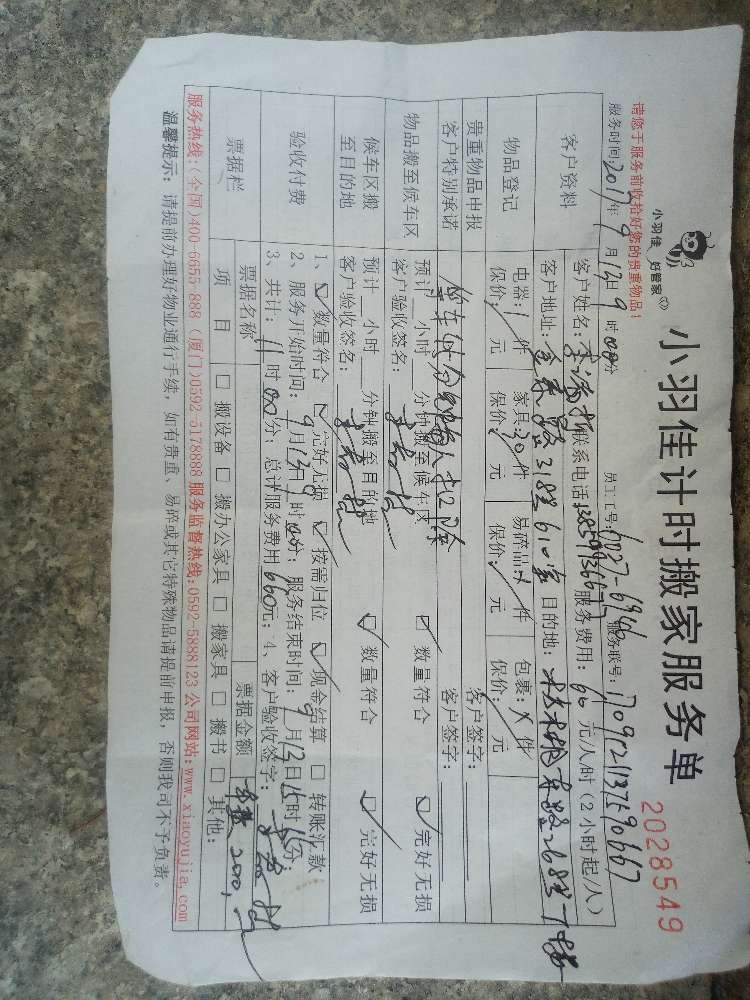 小羽佳 好管家
小羽佳计时搬家服务单
2028549
请您于服务前收拾好您的贵重物品！
员工工号：6827-6946 服务联号：170912113759066
服务时间：2017年9月13日9时00分
客户资料
客户姓名： 联系电话： 服务费用：90元/人/时（2小时起/人）
客户地址：金泰路31号610室 目的地：
物品登记
电器：1件 家具：30件 易碎品：/件 包裹：/件
保价：/元 保价：/元 保价：/元 保价：/元
贵重物品申报 客户签字：
客户特别承诺 客户签字：
物品搬至候车区
预计__小时__分钟搬至候车区 ☑ 数量符合 ☑ 完好无损
客户验收签名：
候车区搬至目的地
预计__小时__分钟搬至目的地 ☑ 数量符合 ☑ 完好无损
客户验收签名：
验收付费
1、☑ 数量符合 ☑ 完好无损 ☑ 按需归位 ☑ 现金结算 □ 转账汇款
2、服务开始时间：9月13日 时00分；服务结束时间：9月13日 时 分；
3、共计：11时00分，总计服务费用660元；4、客户验收签字：
票据栏
票据名称 票据金额 200元
项目 □ 搬设备 □ 搬办公家具 □ 搬家具 □ 搬书 □ 其他：
服务热线：（全国）400-6655-888（厦门）0592-5178888 服务监督热线：0592-5888123 公司网站：www.xiaoyujia.com
温馨提示：请提前办理好物业通行手续，如有贵重、易碎或其它特殊物品请提前申报，否则我司不予负责。